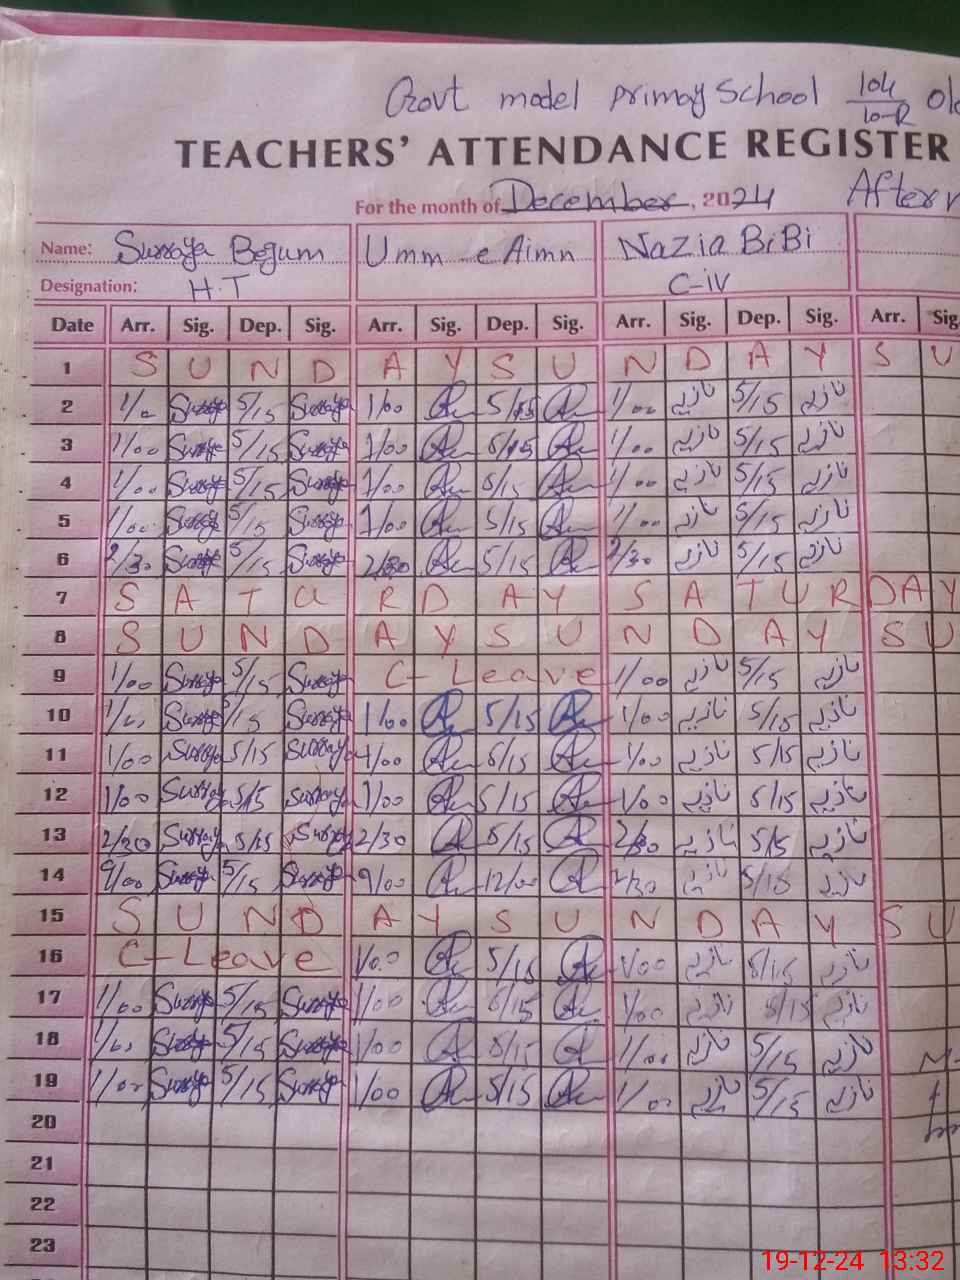 Govt model primary School 104/10-R Old
TEACHERS' ATTENDANCE REGISTER
For the month of December, 2024 After
Name: Surraya Begum Umm-e Aimn Nazia BiBi
Designation: H.T C-iv
Date Arr. Sig. Dep. Sig. Arr. Sig. Dep. Sig. Arr. Sig. Dep. Sig. Arr. Sig.
1 S U N D A Y S U N D A Y S U
2 1/0 Surraya 5/15 Surraya 1/00 5/15 1/00 نازیہ 5/15 نازیہ
3 1/00 Surraya 5/15 Surraya 1/00 5/15 1/00 نازیہ 5/15 نازیہ
4 1/00 Surraya 5/15 Surraya 1/00 5/15 1/00 نازیہ 5/15 نازیہ
5 1/00 Surraya 5/15 Surraya 1/00 5/15 1/00 نازیہ 5/15 نازیہ
6 2/30 Surraya 5/15 Surraya 2/30 5/15 2/30 نازیہ 5/15 نازیہ
7 S A T U R D A Y S A T U R D A Y
8 S U N D A Y S U N D A Y S U
9 1/00 Surraya 5/15 Surraya C-Leave 1/00 نازیہ 5/15 نازیہ
10 1/00 Surraya 5/15 Surraya 1/00 5/15 1/00 نازیہ 5/15 نازیہ
11 1/00 Surraya 5/15 Surraya 1/00 5/15 1/00 نازیہ 5/15 نازیہ
12 1/00 Surraya 5/15 Surraya 1/00 5/15 1/00 نازیہ 5/15 نازیہ
13 2/30 Surraya 5/15 Surraya 2/30 5/15 2/30 نازیہ 5/15 نازیہ
14 9/00 Surraya 5/15 Surraya 9/00 12/00 2/30 نازیہ 5/15 نازیہ
15 S U N D A Y S U N D A Y S U
16 C-Leave 1/00 5/15 1/00 نازیہ 5/15 نازیہ
17 1/00 Surraya 5/15 Surraya 1/00 5/15 1/00 نازیہ 5/15 نازیہ
18 1/00 Surraya 5/15 Surraya 1/00 5/15 1/00 نازیہ 5/15 نازیہ
19 1/00 Surraya 5/15 Surraya 1/00 5/15 1/00 نازیہ 5/15 نازیہ
20
21
22
23
19-12-24 13:32